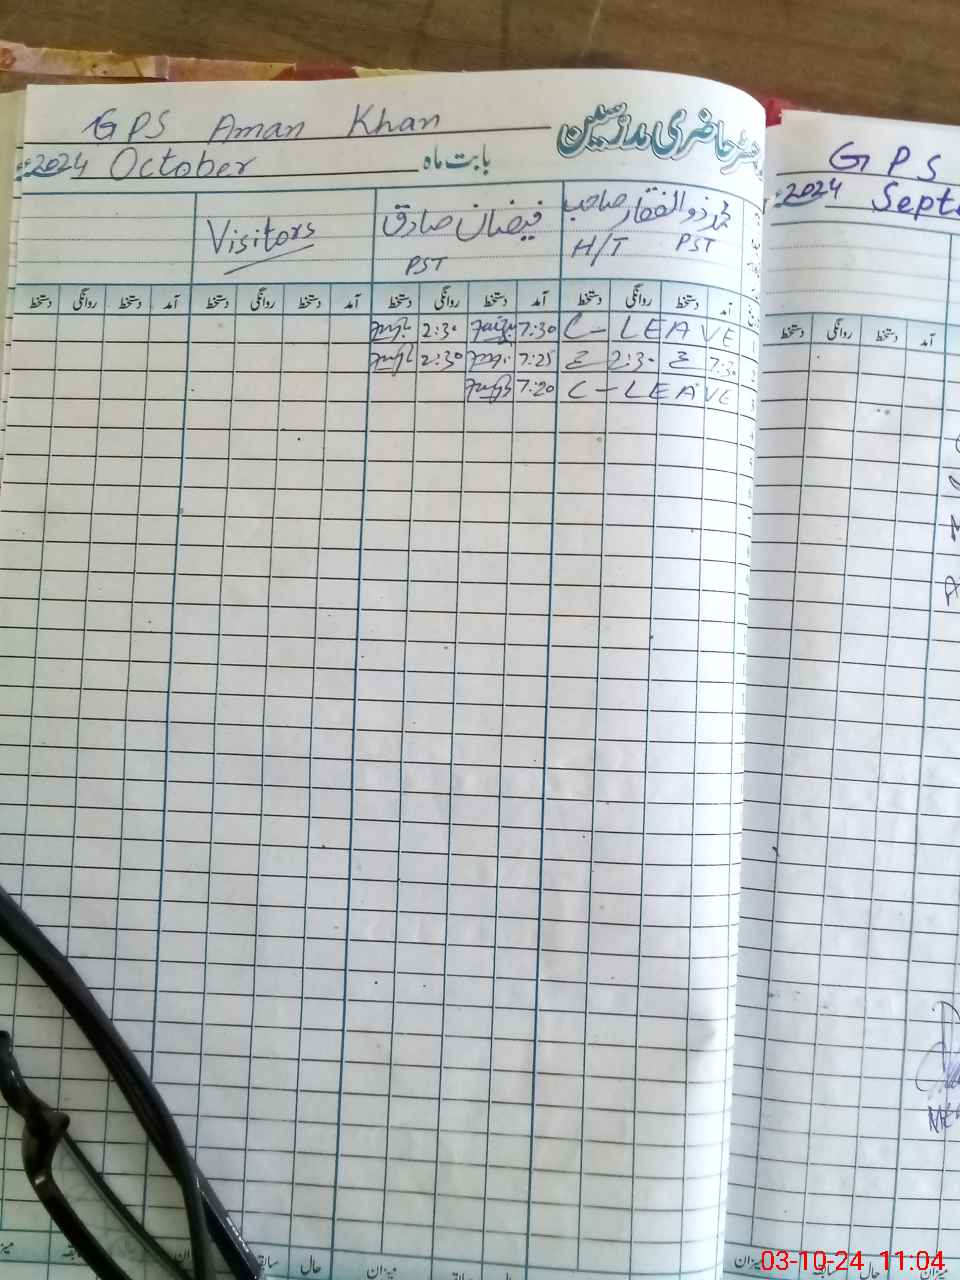 GPS Aman Khan
رجسٹر حاضری مدرسین
2024ء October بابت ماہ
محمد ذوالفقار صاحب
H/T PST
فیضان صادق
PST
Visitors
آمد دستخط روانگی دستخط آمد دستخط روانگی دستخط آمد دستخط روانگی دستخط آمد دستخط روانگی دستخط
1 C-LEAVE 7:30 2:30
2 7:30 2:30 7:25 2:30
3 C-LEAVE 7:20
GPS
2024 Septe
آمد دستخط روانگی دستخط
میزان سابقہ حال میزان
میزان سابقہ حال میزان
03-10-24 11:04